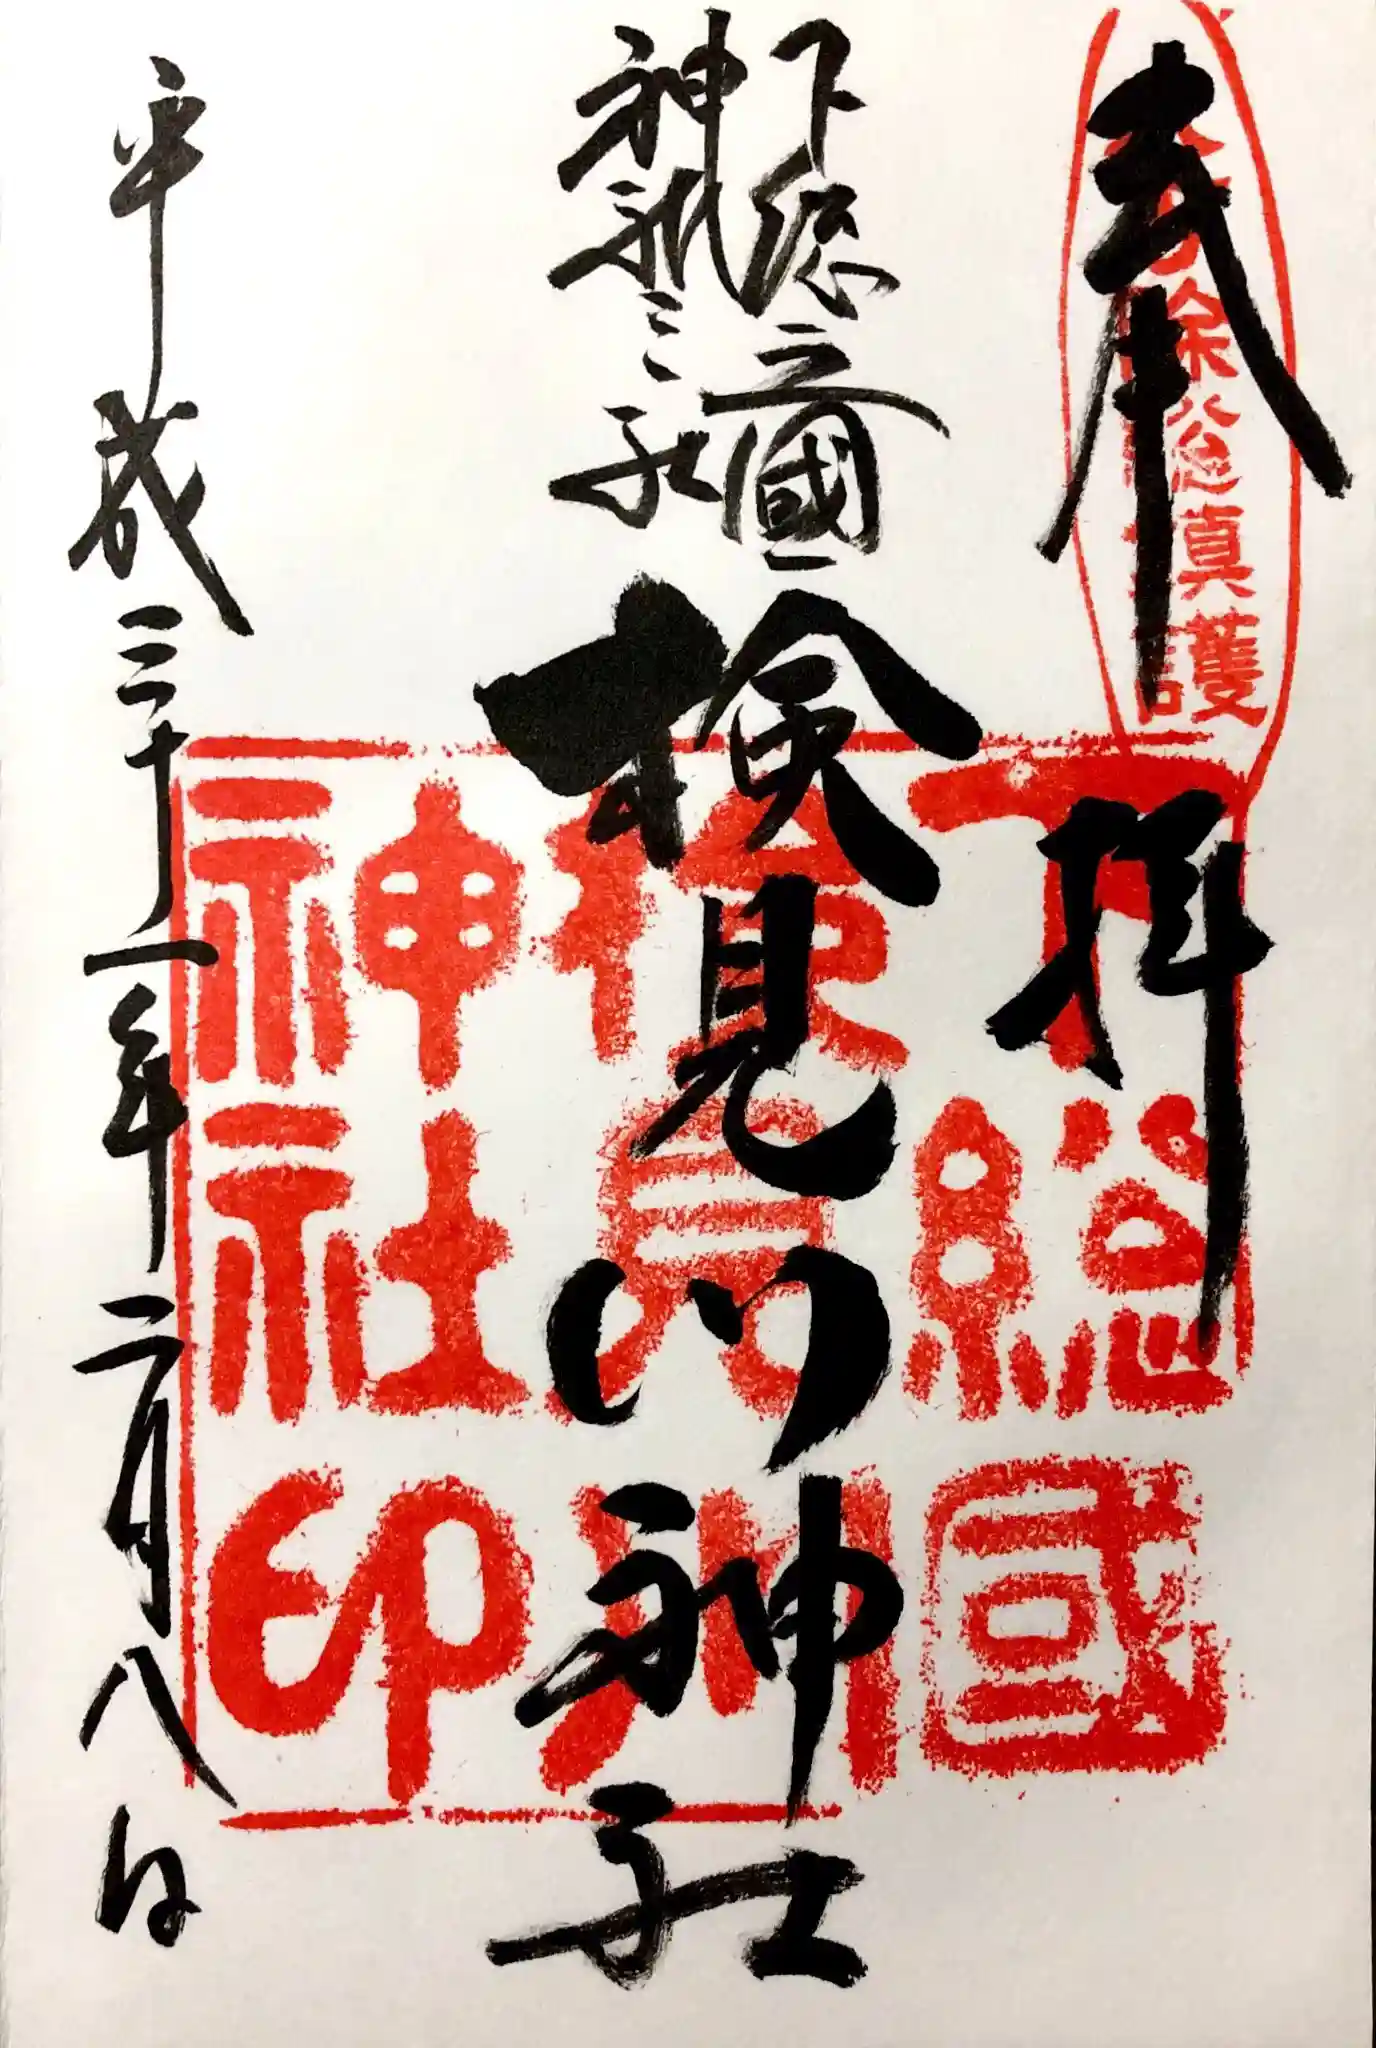 八方除総鎮護
奉拝
下総之國
神祇三社
検見川神社
平成三十一年二月八日
下総國
検見川
神社印